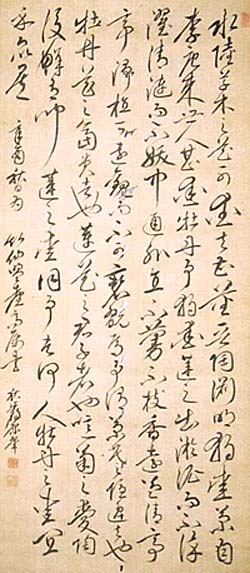 水陸草木之花可愛者甚蕃晉陶淵明獨愛菊自
李唐來世人甚愛牡丹予獨愛蓮之出淤泥而不染
濯清漣而不妖中通外直不蔓不枝香遠益清亭
亭淨植可遠觀而不可褻翫焉予謂菊花之隱逸者也
牡丹花之富貴者也蓮花之君子者也噫菊之愛陶
後鮮有聞蓮之愛同予者何人牡丹之愛宜
乎眾矣